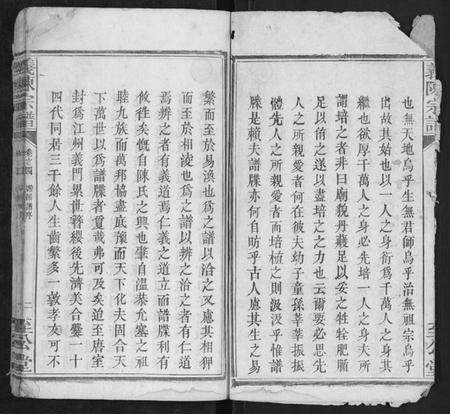 義陳宗譜
也無天地烏乎生無君師烏乎治無祖宗烏乎
出故其始也以一人之身衍為千萬人之身其
繼也欲厚千萬人之身必先培一人之身夫所
謂培之者非曰廟貌丹雘足以妥之牲牷肥腯
足以侑之遂以盡培之之力也云爾要必思先
人之所親愛者何在彼夫幼子童孫莘莘振振
體先人之所親愛而培植之則汲汲乎惟譜
牒是賴夫譜牒亦何自昉乎古人慮其生之易
繁而至於易渙也為之譜以洽之又慮其相狎
而至於相凌也為之譜以辨之洽之者有仁道
焉辨之者有義道焉仁義之道立而譜牒利有
攸往矣慨自陳氏之興也肇自溫恭允塞之祖
睦九族而萬邦協盡底豫而天下化夫固合天
下萬世以為譜牒者夐哉弗可及矣迨至唐室
封為江州義門累世簪纓後先濟美合爨一十
四代同居三千餘人生齒繁多一敦孝友可不
義陳宗譜
卷之四
至公堂